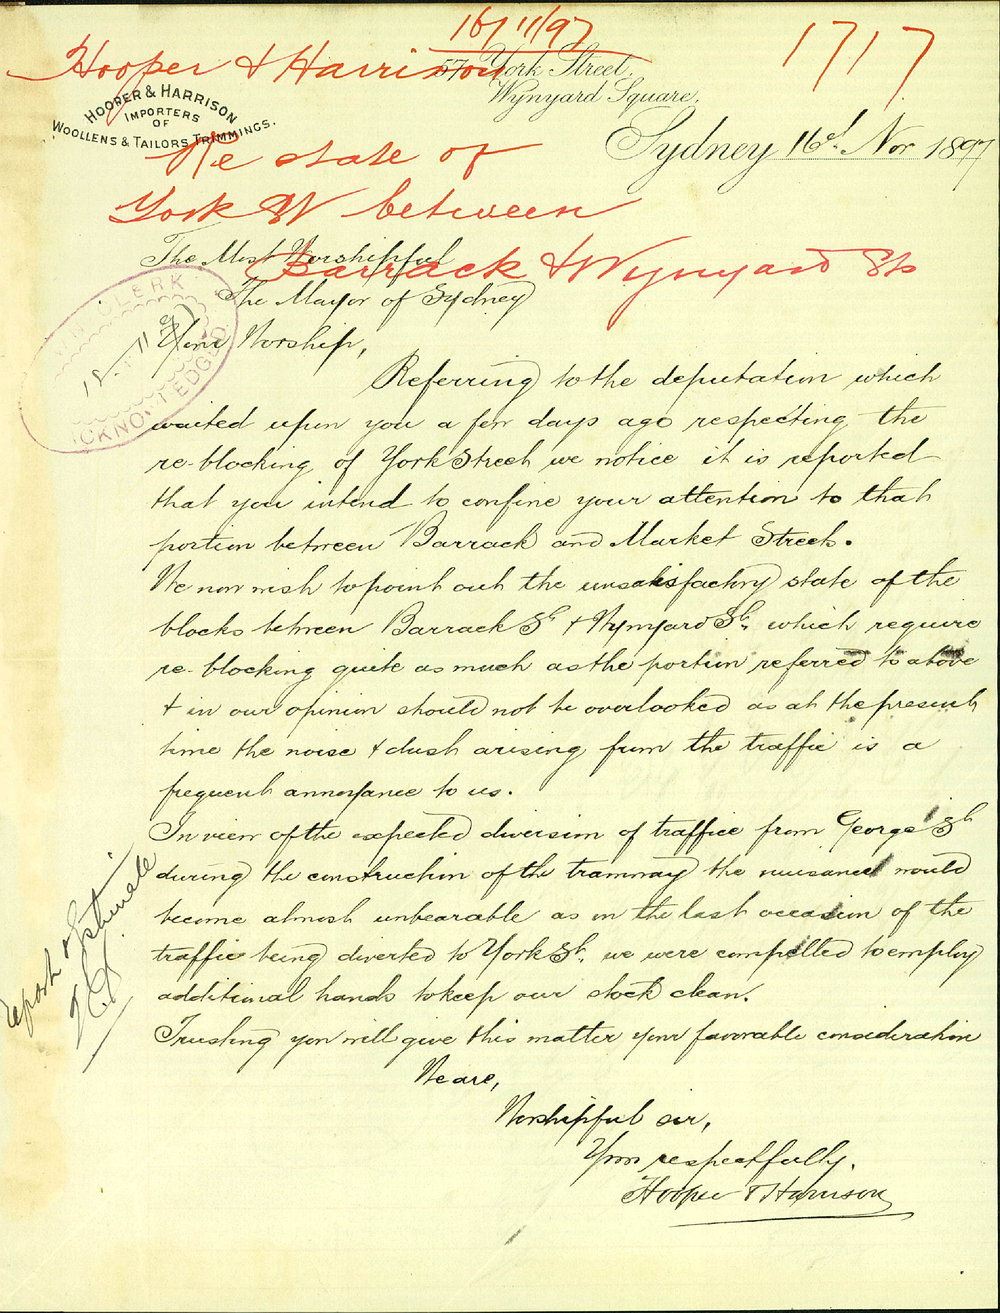 16/11/97
1717
Hooper & Harrison
57 York Street,
Wynyard Square,
HOOPER & HARRISON
IMPORTERS
OF
WOOLLENS & TAILORS TRIMMINGS.
Sydney 16th Nov 1897
Re state of
York St between
Barrack & Wynyard Sts
The Most Worshipful
The Mayor of Sydney
TOWN CLERK
18 11 97
ACKNOWLEDGED.
Your Worship,
Referring to the deputation which
waited upon you a few days ago respecting the
re-blocking of York Street we notice it is reported
that you intend to confine your attention to that
portion between Barrack and Market Streets.
We now wish to point out the unsatisfactory state of the
blocks between Barrack St & Wynyard St, which require
re-blocking quite as much as the portion referred to above
& in our opinion should not be overlooked as at the present
time the noise & dust arising from the traffic is a
frequent annoyance to us.
In view of the expected diversion of traffic from George St
during the construction of the tramway the nuisance would
become almost unbearable as on the last occasion of the
traffic being diverted to York St, we were compelled to employ
additional hands to keep our stock clean.
Trusting you will give this matter your favorable consideration
We are,
Worshipful sir,
Yours respectfully.
Hooper & Harrison
report & estimate